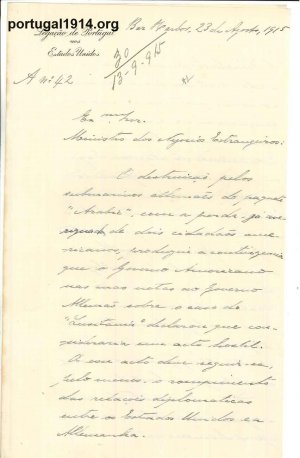 portugal1914.org
Legação de Portugal
nos
Estados Unidos
Bar Harbor, 23 de Agosto, 1915
A nº 42
30
13-9-915
Exmo Snr.
Ministro dos Negocios Estrangeiros:
A destruição pelos
submarinos allemães do paquete
"Arabic", com a perda já
de dois cidadãos ame-
ricanos, produziu a contingencia
que o Governo Americano
nas suas notas ao Governo
Allemão sobre o caso do
"Lusitania" declarou que con-
sideraria um acto hostil.
A esse acto deve seguir-se,
pelo menos, o rompimento
das relações diplomaticas
entre os Estados Unidos e a
Allemanha.